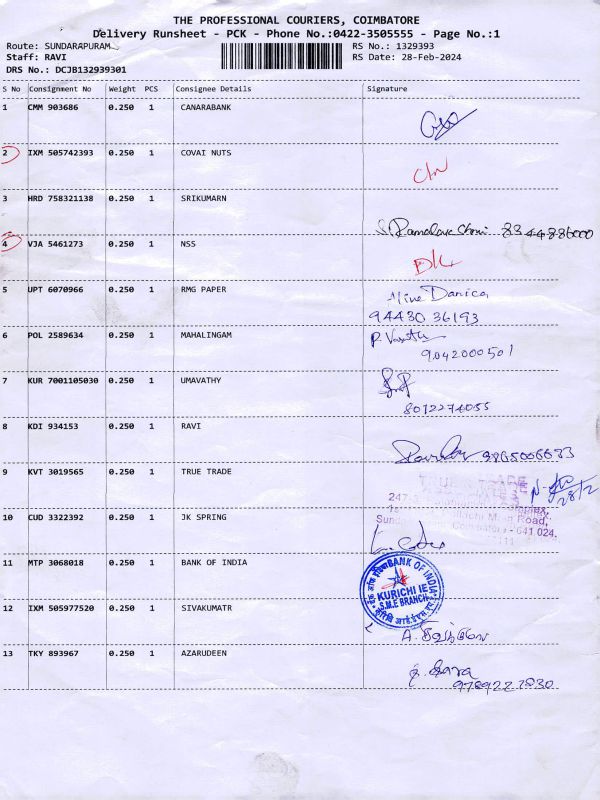 THE PROFESSIONAL COURIERS, COIMBATORE
Delivery Runsheet - PCK - Phone No.:0422-3505555 - Page No.:1
Route: SUNDARAPURAM
Staff: RAVI
DRS No.: DCJB132939301
RS No.: 1329393
RS Date: 28-Feb-2024
S No Consignment No Weight PCS Consignee Details Signature
1 CMM 903686 0.250 1 CANARABANK
2 IXM 505742393 0.250 1 COVAI NUTS
3 HRD 758321138 0.250 1 SRIKUMARN
8344886000
4 VJA 5461273 0.250 1 NSS
5 UPT 6070966 0.250 1 RMG PAPER
94430 36193
6 POL 2589634 0.250 1 MAHALINGAM
9042000501
7 KUR 7001105030 0.250 1 UMAVATHY
8012274055
8 KDI 934153 0.250 1 RAVI
9 KVT 3019565 0.250 1 TRUE TRADE
28/2
10 CUD 3322392 0.250 1 JK SPRING
Main Road,
641 024.
11 MTP 3068018 0.250 1 BANK OF INDIA
BANK OF INDIA
KURICHI IE
S.M.E BRANCH
12 IXM 505977520 0.250 1 SIVAKUMATR
13 TKY 893967 0.250 1 AZARUDEEN
9789227830